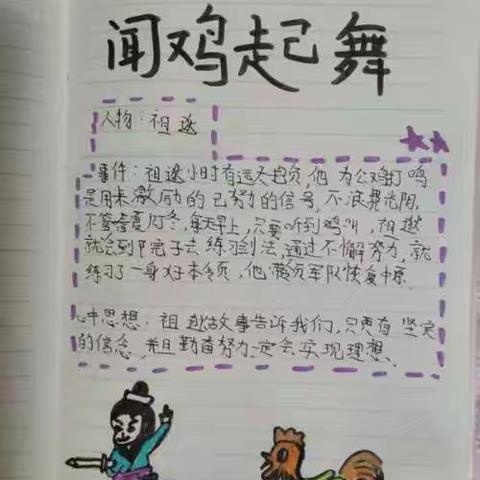 闻鸡起舞
人物:祖逖
事件:祖逖小时有远大抱负,他为公鸡打鸣
是用来激励的己努力的信号,不浪费光阴,
不管春夏秋冬,每天早上,只要听到鸡叫,祖逖
就会到院子去练习剑法,通过不懈努力,就
练习了一身好本领,他带领军队恢复中原.
中思想:祖逖故事告诉我们,只要有坚定
的信念,并且勤奋努力一定会实现理想.